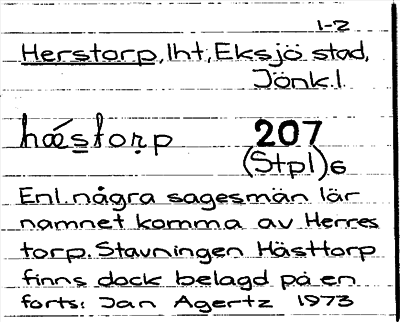 1-2
Herstorp, lht, Eksjö stad,
Jönk.l.
hǽs̲torp̣ 207
(Stpl)6
Enl. några sagesmän lär
namnet komma av Herres
torp. Stavningen Hästtorp
finns dock belagd på en
forts: Jan Agertz 1973